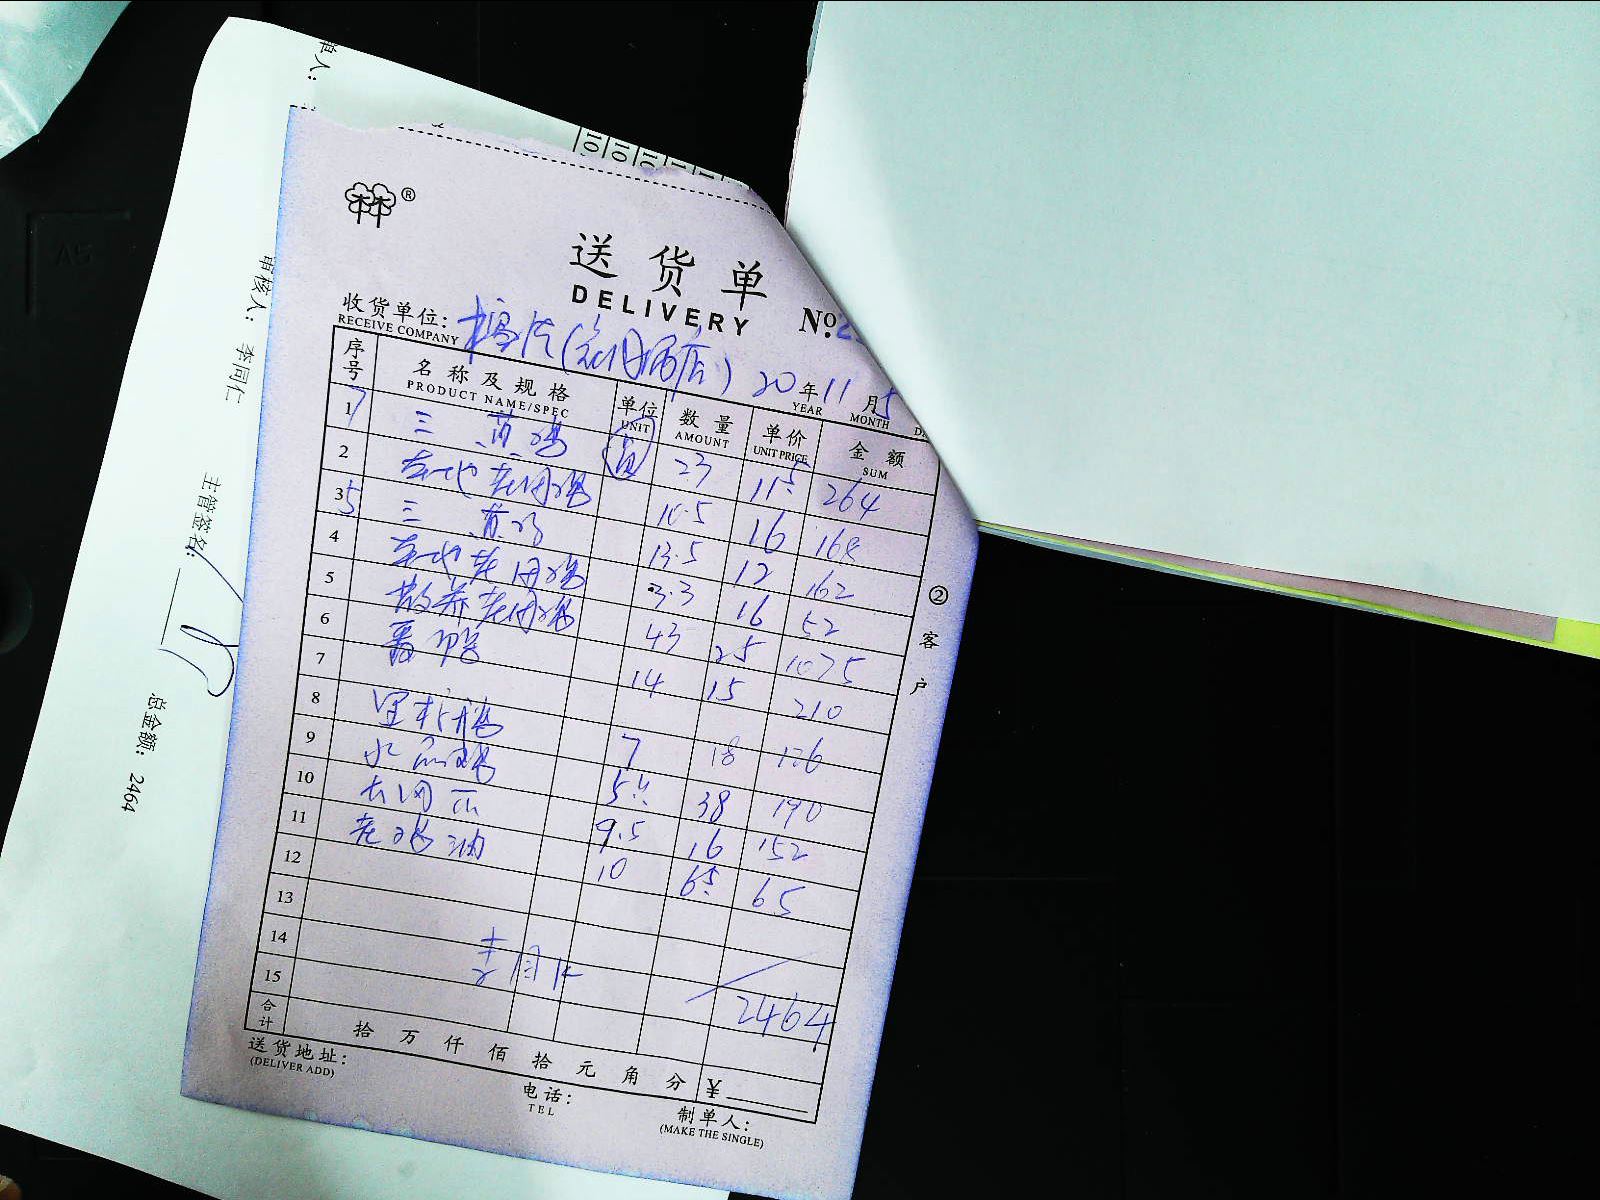 单人：
审核人： 李同仁
主管签名：
总金额： 2464
10
10
10
®
送货单
DELIVERY
No
收货单位：
RECEIVE COMPANY
20 年 11 月 5
YEAR MONTH
序号 名称及规格 单位 数量 单价 金额
PRODUCT NAME/SPEC UNIT AMOUNT UNIT PRICE SUM
1 三黄鸡 23 11.5 264
2 本地老母鸡 10.5 16 168
3 三黄鸡 13.5 12 162
4 本地老母鸡 3.3 16 52
5 散养老母鸡 43 25 1075
6 番鸭 14 15 210
7
8 7 18 126
9 5 38 190
10 9.5 16 152
11 老鸡油 10 6.5 65
12
13
14 李同仁
15 2464
合计 拾 万 仟 佰 拾 元 角 分 ¥
② 客户
送货地址：
(DELIVER ADD)
电话：
TEL
制单人：
(MAKE THE SINGLE)
A5